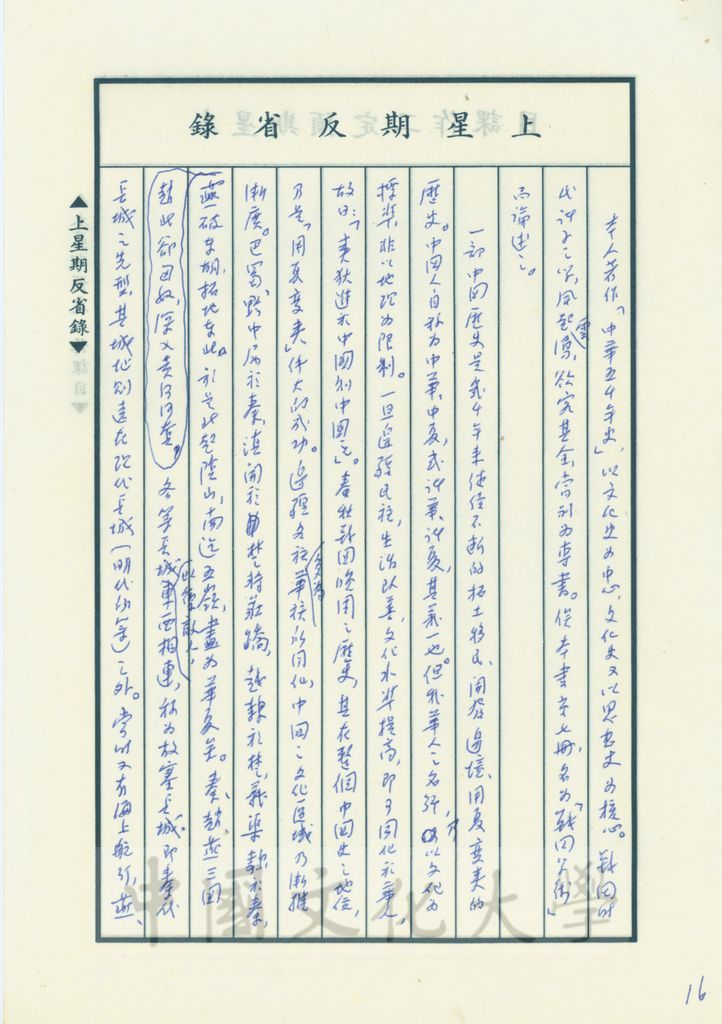 上星期反省錄
本人著作「中華五千年史」，以文化史為中心，文化史又以思想史為核心。戰國時
代諸子之學，風起雲湧，欲究其全，當別為專書。俟本書第七冊，名為「戰國學術」
而論述之。
一部中國歷史是我千年來継續不斷的拓土移民、開發邊境、用夏變夷的
歷史。中國人自稱為中華、中夏，或諸華、諸夏，其義一也。但我華人之名詞，乃以文化為
標準，非以地理為限制。一旦邊疆民族，生活改善，文化水準提高，即可同化於華人，
故曰：「夷狄進於中國則中國之」。春秋戰國晚周之歷史，其在整個中國史之地位，
乃是「用夏變夷」偉大的成功。邊疆各族多為華族所同化，中國之文化區域乃漸推
漸廣。巴蜀、黔中屬於秦，滇開於楚將莊蹻，越隸於楚，義渠隸於秦，
燕破東胡，拓地東北。於是北起陰山，南迄五嶺，盡為華夏矣。秦、趙、燕三國
趙北卻匈奴，深入黃河河套。各築長城以禦敵人，東西相連，稱為故塞長城。即秦代
長城之先型，其城址則遠在現代長城（明代所築）之外。當時又有海上航行，燕、
▲上星期反省錄▼
中國文化大學
16